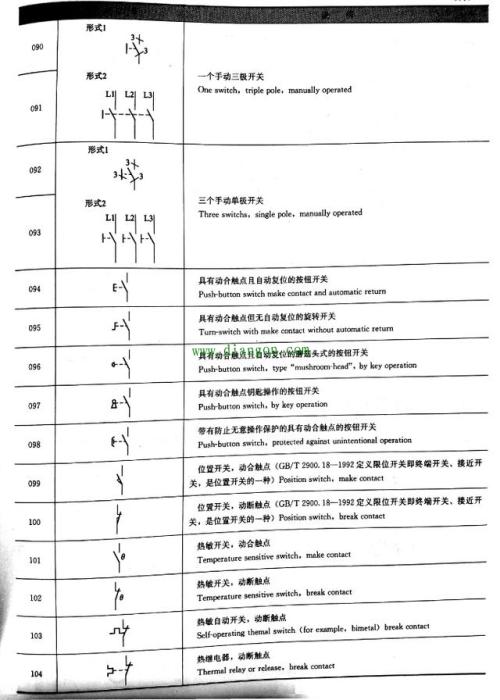 形式1
090
3
3
形式2
一个手动三极开关
One switch, triple pole, manually operated
091
L1 L2 L3
形式1
092
3
3 3
形式2
三个手动单极开关
Three switchs, single pole, manually operated
093
L1 L2 L3
094
具有动合触点且自动复位的按钮开关
Push-button switch make contact and automatic return
095
具有动合触点但无自动复位的旋转开关
Turn-switch with make contact without automatic return
www.diangon.com
096
具有动合触点且自动复位的蘑菇头式的按钮开关
Push-button switch, type "mushroom-head", by key operation
097
具有动合触点钥匙操作的按钮开关
Push-button switch, by key operation
098
带有防止无意操作保护的具有动合触点的按钮开关
Push-button switch, protected against unintentional operation
099
位置开关，动合触点（GB/T 2900.18—1992 定义限位开关即终端开关、接近开
关，是位置开关的一种）Position switch, make contact
100
位置开关，动断触点（GB/T 2900.18—1992 定义限位开关即终端开关、接近开
关，是位置开关的一种）Position switch, break contact
101
θ
热敏开关，动合触点
Temperature sensitive switch, make contact
102
θ
热敏开关，动断触点
Temperature sensitive switch, break contact
103
热敏自动开关，动断触点
Self-operating themal switch (for example, bimetal) break contact
104
热继电器，动断触点
Thermal relay or release, break contact